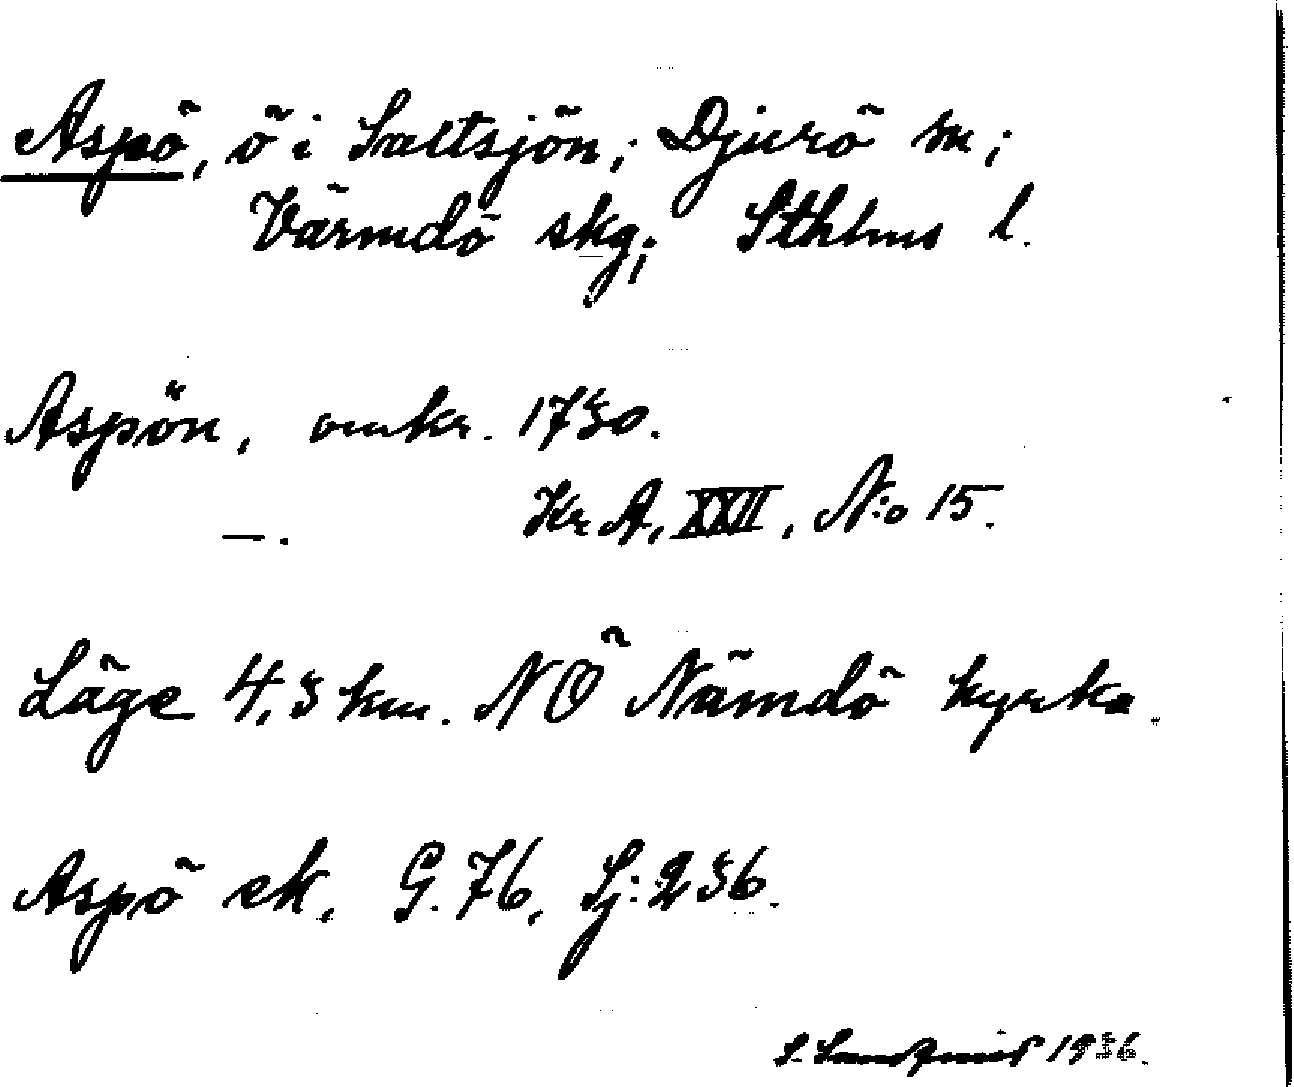 Aspö, ö i Saltsjön; Djurö sn;
Värmdö skg; Sthlms l.
Aspön, omkr. 1730.
—. Kr A, XXII, N:o 15.
Läge 4,5 km. NÖ Nämdö kyrka.
Aspö ek. G. 76, Sj: 236.
S. 1936.